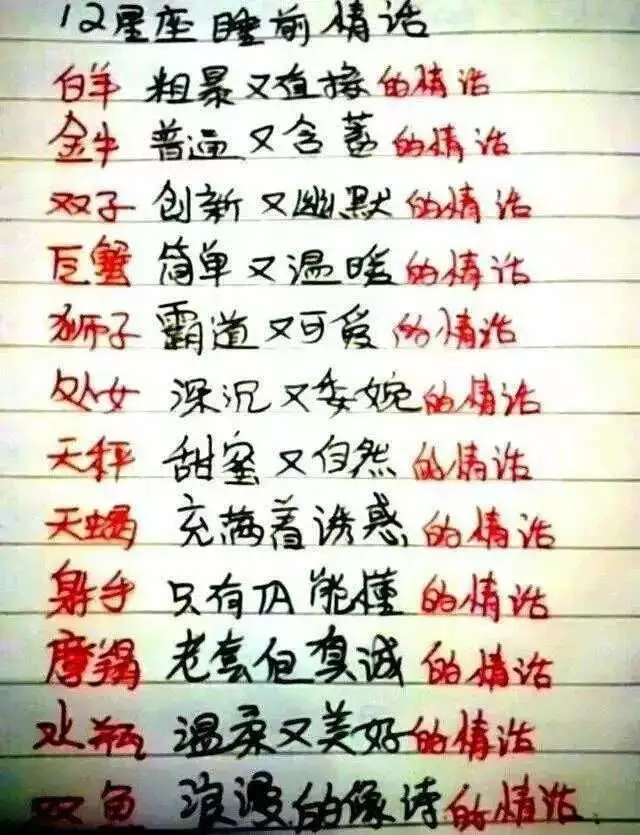 12星座睡前情话
白羊 粗暴又直接的情话
金牛 普通又含蓄的情话
双子 创新又幽默的情话
巨蟹 简单又温暖的情话
狮子 霸道又可爱的情话
处女 深沉又委婉的情话
天秤 甜蜜又自然的情话
天蝎 充满着诱惑的情话
射手 只有TA能懂的情话
摩羯 老套但真诚的情话
水瓶 温柔又美好的情话
双鱼 浪漫的像诗的情话